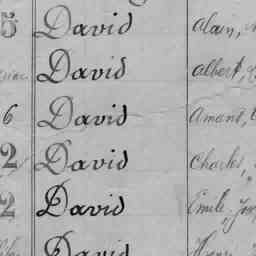 5 David Alain,
David Albert,
6 David Amand,
2 David Charles,
2 David Emile, Jos
David Henri